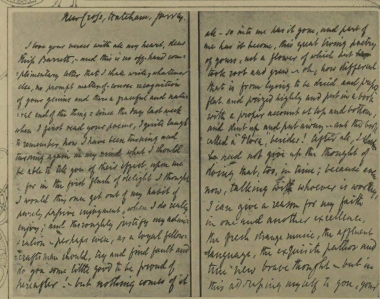 New Cross, Hatcham, Surrey.
I love your verses with all my heart, dear
Miss Barrett,- and this is no off-hand com-
plimentary letter that I shall write, - whatever
else, no prompt matter-of-course recognition
of your genius and there a graceful and natu-
ral end of the thing: since the day last week
when I first read your poems, I quite laugh
to remember how I have been turning and
turning again in my mind what I should
be able to tell you of their effect upon me -
for in the first flush of delight I thought
I would this once get out of my habit of
purely passive enjoyment, when I do really
enjoy, and thoroughly justify my admi-
ration - perhaps even, as a loyal fellow-
craftsman should, try and find fault and
do you some little good to be proud of
hereafter! - but nothing comes of it
all - so into me has it gone, and part of
me has it become, this great living poetry
of yours, not a flower of which but
took root and grew - oh, how different
that is from lying to be dried and pressed
flat and prized highly and put in a book
with a proper account at top and bottom,
and shut up and put away.. and the book
called a 'Flora', besides! After all, I
need not give up the thought of
doing that, too, in time; because even
now, talking with whoever is worthy,
I can give a reason for my faith
in one and another excellence,
the fresh strange music, the affluent
language, the exquisite pathos and
true new brave thought - but in
this addressing myself to you, your